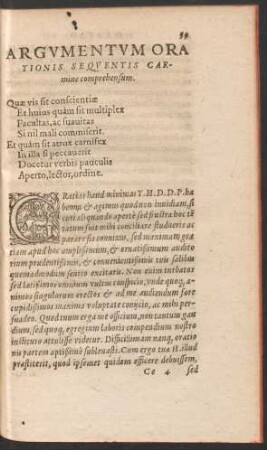 59
ARGVMENTVM ORA
TIONIS SEQVENTIS CAR-
mine comprehensum.
Quæ vis sit conscientiæ
Et huius quàm sit multiplex
Facultas, ac suauitas
Si nil mali commiserit.
Et quàm sit atrox carnifex
In illa si peccauerit
Docetur verbis pauculis
Aperto, lector, ordine.
GRates haud minimas T. H. D. D. P. ha
bemus & agimus quod non inuidiam, si
cuti aliquando apertè sed frustra hoc cō
natum suit mihi conciliare studeret ac
parare sit omnium, sed maximam gra
tiam apud hoc amplissimum, & ornatissimum audito
rium prudentissimis, & conuenientissimis suis salibus
quemadmodum senio excitaris. Non enim turbatus
sed latissimos omnium vultus conspicio, vnde quoq, a-
nimos singulorum erectos & ad me audiendum fore
cupidissimos maxima voluptate concipio, ac mihi per-
suadeo. Quod tuum erga me officium, non tantum gau
dium, sed quoq, egregium laboris compendium nostro
instituto attulisse videtur. Difficillimam nanq, oratio
nis partem aptissimè subleuasti. Cum ergo tua H. illud
præstiterit, quod ipsemet quidem efficere debuissem,
Cc 4 sed